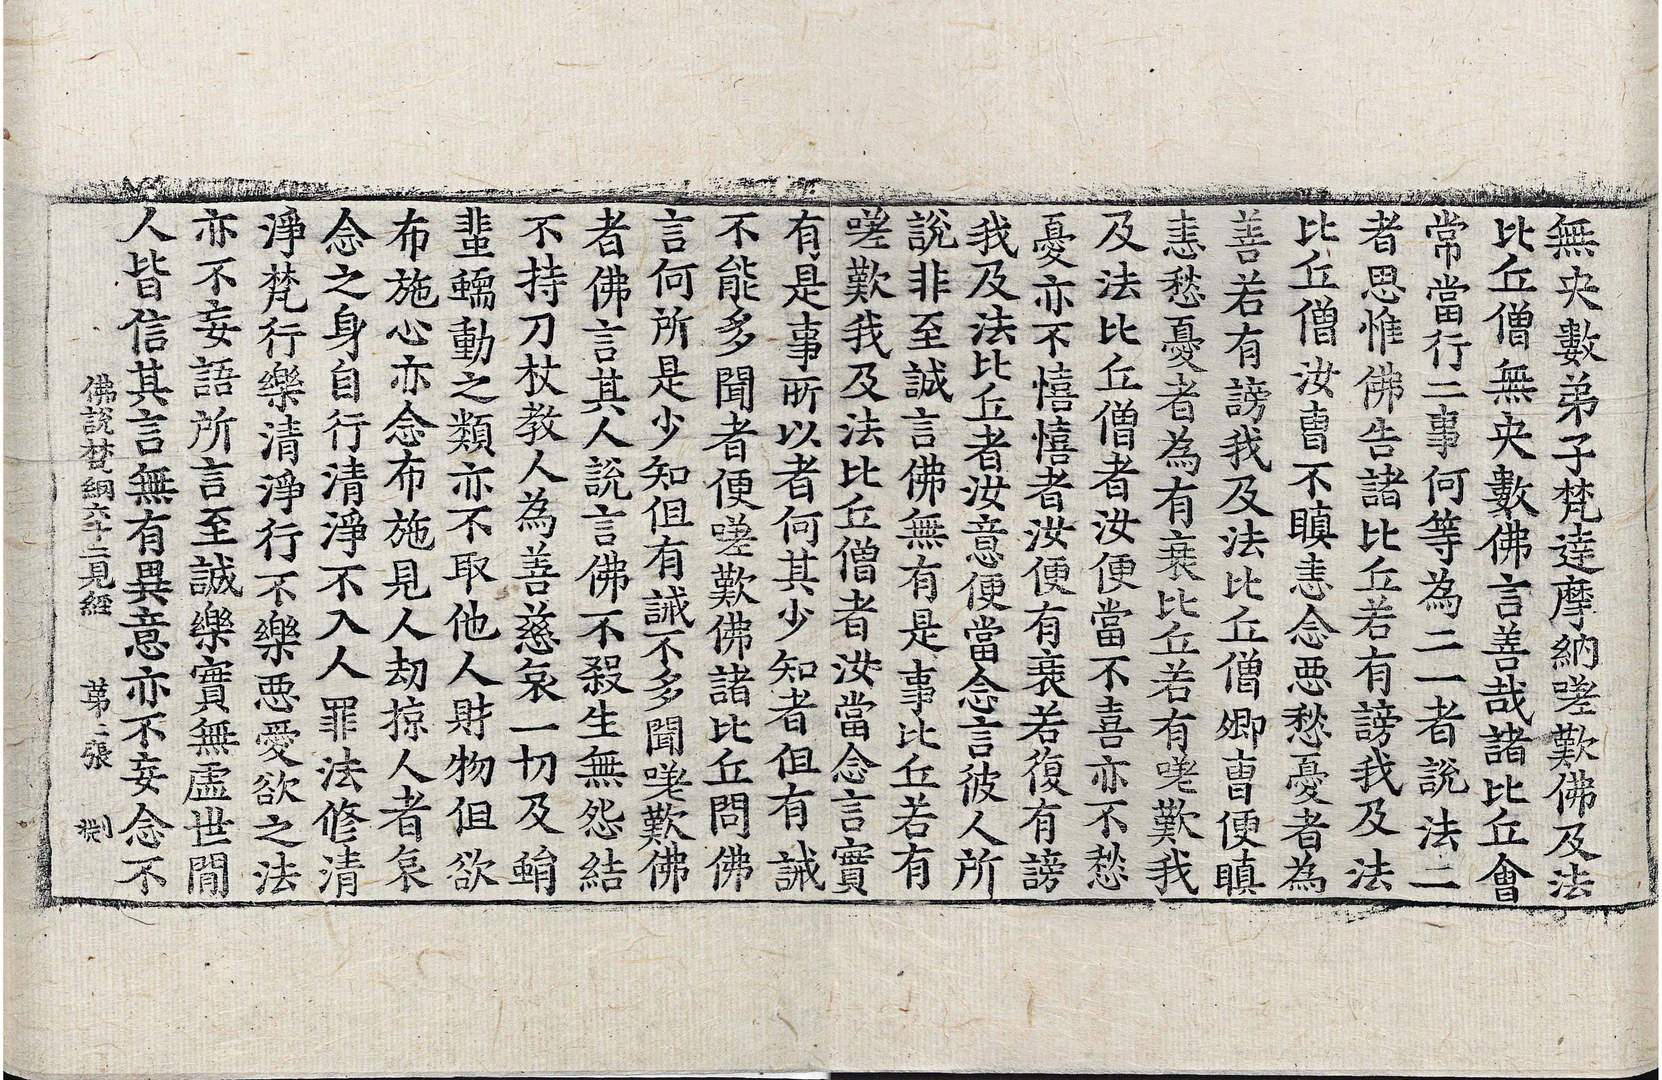 無央數弟子梵達摩納嗟歎佛及法
比丘僧無央數佛言善哉諸比丘會
常當行二事何等為二一者說法二
者思惟佛告諸比丘若有謗我及法
比丘僧汝曹不瞋恚念惡愁憂者為
善若有謗我及法比丘僧卿曹便瞋
恚愁憂者為有衰比丘若有嗟歎我
及法比丘僧者汝便當不喜亦不愁
憂亦不憘憘者汝便有衰若復有謗
我及法比丘者汝意便當念言彼人所
說非至誠言佛無有是事比丘若有
嗟歎我及法比丘僧者汝當念言實
有是事所以者何其少知者但有誡
不能多聞者便嗟歎佛諸比丘問佛
言何所是少知但有誡不多聞嗟歎佛
者佛言其人說言佛不殺生無怨結
不持刀杖教人為善慈哀一切及蜎
蜚蠕動之類亦不取他人財物但欲
布施心亦念布施見人劫掠人者哀
念之身自行清淨不入人罪法修清
淨梵行樂清淨行不樂惡愛欲之法
亦不妄語所言至誠樂實無虛世間
人皆信其言無有異意亦不妄念不
佛說梵網六十二見經 苐二張